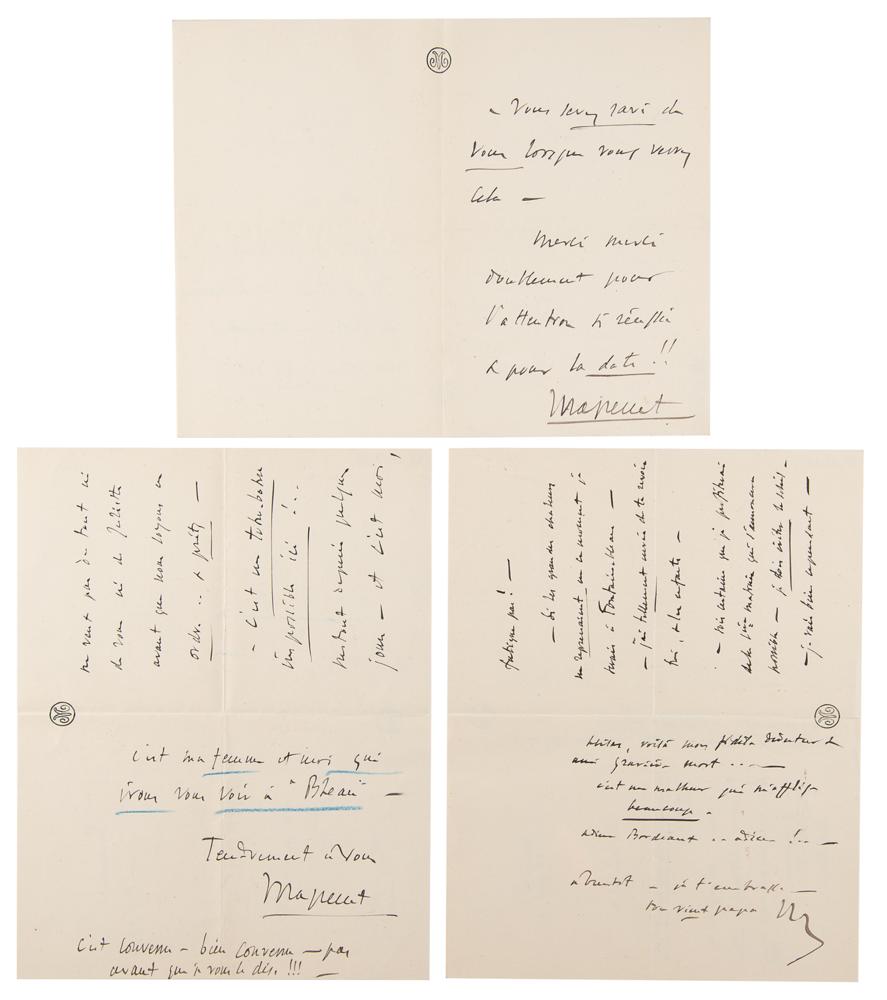 Vous serez ravi de
vous lorsque vous verrez
cela —
Merci merci
doublement pour
l'attention si
& pour la date !!
Massenet
ne veut pas du tout ni
de vous ni de Juliette
avant que nous soyons en
ordre .. & prêts —
— c'est un
impossible ici !...
surtout depuis quelques
jours — et c'est moi,
c'est ma femme et moi qui
irons vous voir à "Bleau" —
Tendrement à vous
Massenet
c'est convenu — bien convenu — pas
avant que je vous le dise !!! —
fatigue pas ! —
— si les grandes chaleurs
en ce moment je
serais à Fontainebleau —
— j'ai tellement envie de te revoir
toi, & les enfants —
— sois certaine que je
possible — je dois éviter le soleil —
— je vais bien cependant —
hélas, voilà mon fidèle directeur &
ami Gravière mort ... —
c'est un malheur qui m'afflige
beaucoup .
adieu Bordeaux .. adieu !.. —
à bientôt — je t'embrasse —
ton vieux papa
M